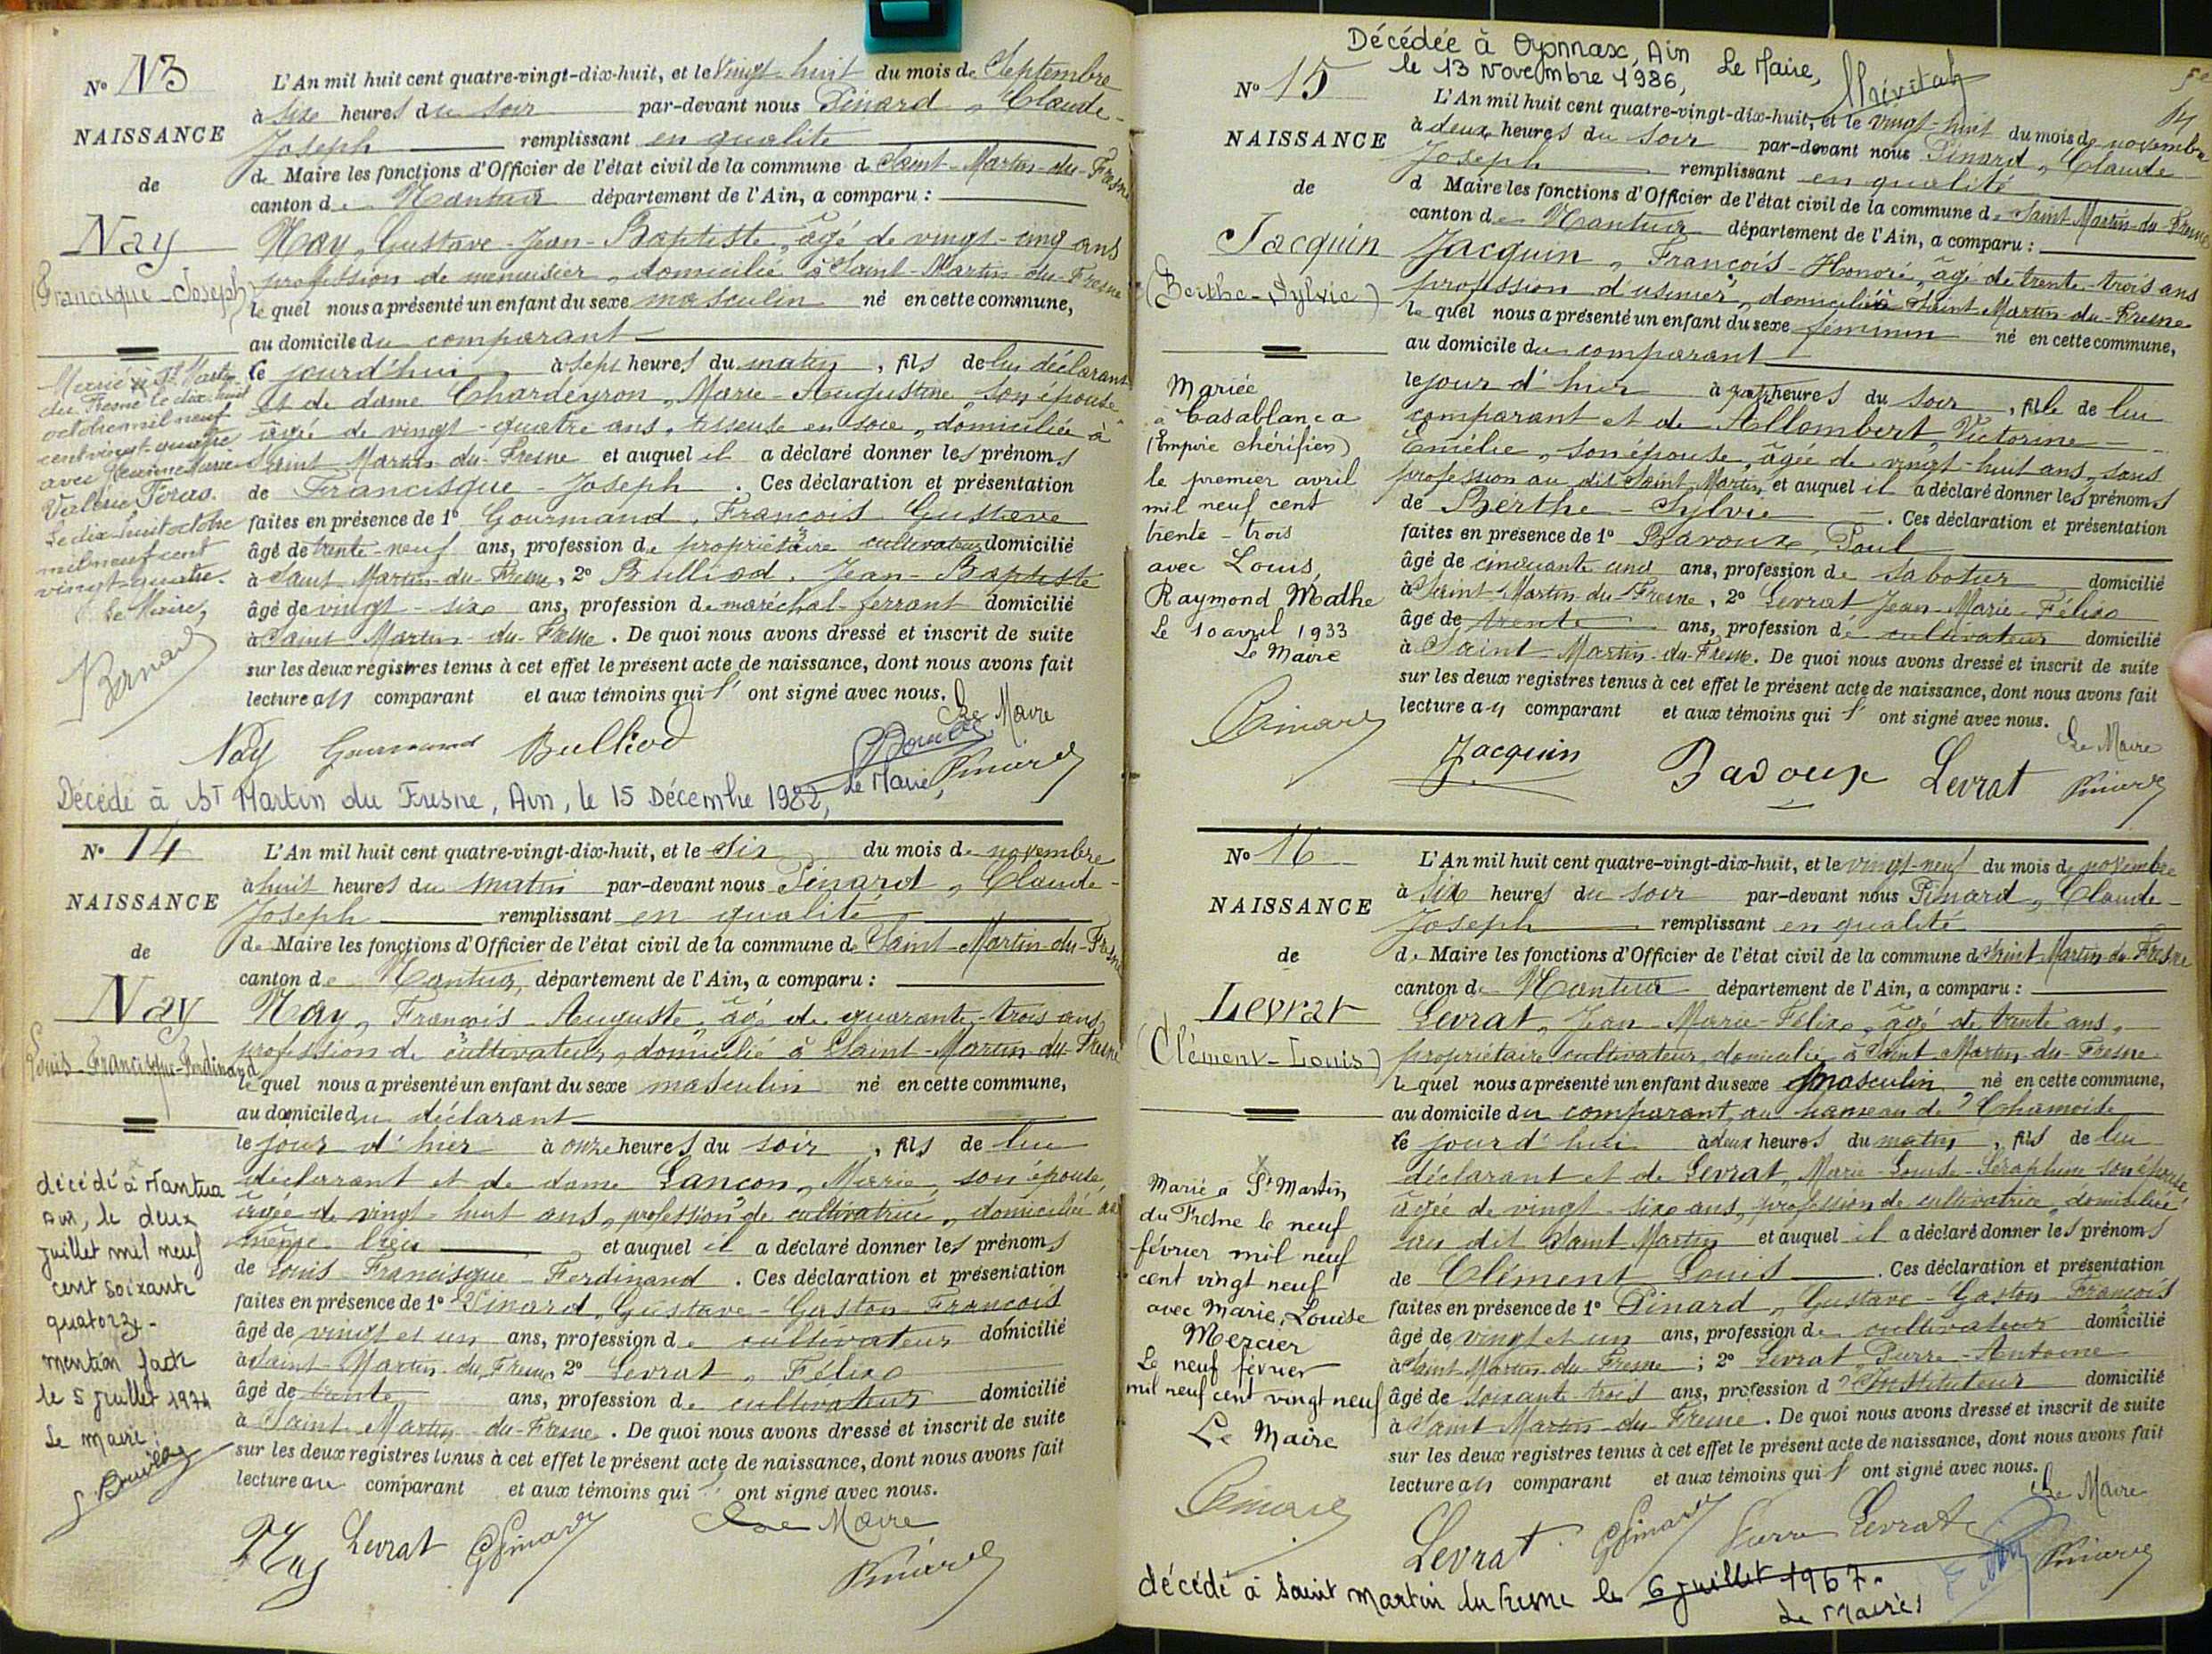 N° 13
NAISSANCE
de
Nay
(Francisque-Joseph)
Marié à St Martin
du Fresne le dix-huit
octobre mil neuf
cent vingt-quatre
avec Jeanne Marie
Valérie Féras.
Le dix-huit octobre
mil neuf cent
vingt-quatre.
Le Maire,
Bernard
L'An mil huit cent quatre-vingt-dix-huit, et le vingt-huit du mois de Septembre
à six heures du soir par-devant nous Pinard, Claude-
Joseph remplissant en qualité
de Maire les fonctions d'Officier de l'état civil de la commune de Saint-Martin-du-Fresne
canton de Nantua département de l'Ain, a comparu :
Nay, Gustave-Jean-Baptiste, âgé de vingt-cinq ans
profession de menuisier, domicilié à Saint-Martin-du-Fresne
lequel nous a présenté un enfant du sexe masculin né en cette commune,
au domicile du comparant
ce jourd'hui à sept heures du matin, fils de lui déclarant
et de dame Chardeyron, Marie-Augustine, son épouse
âgée de vingt-quatre ans, tisseuse en soie, domiciliée à
Saint Martin-du-Fresne et auquel il a déclaré donner les prénoms
de Francisque-Joseph. Ces déclaration et présentation
faites en présence de 1° Gourmand, François Gustave
âgé de trente-neuf ans, profession de propriétaire cultivateur domicilié
à Saint-Martin-du-Fresne, 2° Bulliod, Jean-Baptiste
âgé de vingt-six ans, profession de maréchal-ferrant domicilié
à Saint Martin-du-Fresne. De quoi nous avons dressé et inscrit de suite
sur les deux registres tenus à cet effet le présent acte de naissance, dont nous avons fait
lecture au comparant et aux témoins qui l' ont signé avec nous.
Le Maire
Nay Gourmand Bulliod Pinard
Décédé à St Martin du Fresne, Ain, le 15 Décembre 1982, Le Maire,
N° 14
NAISSANCE
de
Nay
Louis-Francisque-Ferdinand
décédé à Nantua
Ain, le deux
juillet mil neuf
cent soixante
quatorze-
mention faite
le 5 juillet 1974
Le maire:
L'An mil huit cent quatre-vingt-dix-huit, et le six du mois de novembre
à huit heures du matin par-devant nous Pinard, Claude-
Joseph remplissant en qualité
de Maire les fonctions d'Officier de l'état civil de la commune de Saint-Martin-du-Fresne
canton de Nantua, département de l'Ain, a comparu :
Nay, François-Auguste, âgé de quarante-trois ans
profession de cultivateur, domicilié à Saint-Martin-du-Fresne
lequel nous a présenté un enfant du sexe masculin né en cette commune,
au domicile du déclarant
le jour d'hier à onze heures du soir, fils de lui
déclarant et de dame Lançon, Marie, son épouse,
âgée de vingt-huit ans, profession de cultivatrice, domiciliée au
même lieu et auquel il a déclaré donner les prénoms
de Louis-Francisque-Ferdinand. Ces déclaration et présentation
faites en présence de 1° Pinard, Gustave-Gaston-François
âgé de vingt et un ans, profession de cultivateur domicilié
à Saint-Martin-du-Fresne 2° Levrat, Félix
âgé de trente ans, profession de cultivateur domicilié
à Saint Martin-du-Fresne. De quoi nous avons dressé et inscrit de suite
sur les deux registres tenus à cet effet le présent acte de naissance, dont nous avons fait
lecture au comparant et aux témoins qui l' ont signé avec nous.
Le Maire
Nay Levrat G Pinard Pinard
Décédée à Oyonnax, Ain
le 13 Novembre 1986, Le Maire,
N° 15
NAISSANCE
de
Jacquin
(Berthe-Sylvie)
Mariée
à Casablanca
(Empire chérifien)
le premier avril
mil neuf cent
trente-trois
avec Louis,
Raymond Mathe
Le 10 avril 1933
Le Maire
Pinard
L'An mil huit cent quatre-vingt-dix-huit, et le vingt-huit du mois de novembre
à deux heures du soir par-devant nous Pinard, Claude-
Joseph remplissant en qualité
d Maire les fonctions d'Officier de l'état civil de la commune de Saint-Martin-du-Fresne
canton de Nantua département de l'Ain, a comparu :
Jacquin, François-Honoré, âgé de trente-trois ans
profession d'usinier, domicilié à Saint-Martin-du-Fresne
lequel nous a présenté un enfant du sexe féminin né en cette commune,
au domicile du comparant
le jour d'hier à heures du soir, fille de lui
comparant et de Allombert, Victorine-
Emélie, son épouse, âgée de vingt-huit ans, sans
profession au dit Saint-Martin, et auquel il a déclaré donner les prénoms
de Berthe-Sylvie. Ces déclaration et présentation
faites en présence de 1° Baroux, Paul
âgé de cinquante cinq ans, profession de sabotier domicilié
à Saint-Martin-du-Fresne, 2° Levrat Jean-Marie-Félix
âgé de trente ans, profession de cultivateur domicilié
à Saint Martin-du-Fresne. De quoi nous avons dressé et inscrit de suite
sur les deux registres tenus à cet effet le présent acte de naissance, dont nous avons fait
lecture au comparant et aux témoins qui l' ont signé avec nous.
Le Maire
Jacquin Baroux Levrat Pinard
N° 16
NAISSANCE
de
Levrat
(Clément-Louis)
Marié à St Martin
du Fresne le neuf
février mil neuf
cent vingt neuf
avec Marie, Louise
Mercier
Le neuf février
mil neuf cent vingt neuf
Le Maire
Pinard
L'An mil huit cent quatre-vingt-dix-huit, et le vingt-neuf du mois de novembre
à six heures du soir par-devant nous Pinard, Claude-
Joseph remplissant en qualité
de Maire les fonctions d'Officier de l'état civil de la commune de Saint-Martin-du-Fresne
canton de Nantua département de l'Ain, a comparu :
Levrat, Jean-Marie-Félix, âgé de trente ans,
propriétaire cultivateur, domicilié à Saint Martin-du-Fresne
lequel nous a présenté un enfant du sexe masculin né en cette commune,
au domicile du comparant, au hameau de Chamoise
ce jour d'hui à deux heures du matin, fils de lui
déclarant et de Levrat, Marie-Louise-Séraphine son épouse,
âgée de vingt-six ans, profession de cultivatrice domiciliée
au dit Saint Martin et auquel il a déclaré donner les prénoms
de Clément Louis. Ces déclaration et présentation
faites en présence de 1° Pinard, Gustave-Gaston-François
âgé de vingt et un ans, profession de cultivateur domicilié
à Saint-Martin-du-Fresne ; 2° Levrat, Pierre-Antoine
âgé de soixante-trois ans, profession d'Instituteur domicilié
à Saint Martin-du-Fresne. De quoi nous avons dressé et inscrit de suite
sur les deux registres tenus à cet effet le présent acte de naissance, dont nous avons fait
lecture au comparant et aux témoins qui l' ont signé avec nous.
Le Maire
Levrat G Pinard Pierre Levrat Pinard
décédé à Saint Martin du Fresne le 6 juillet 1967.
Le Maire